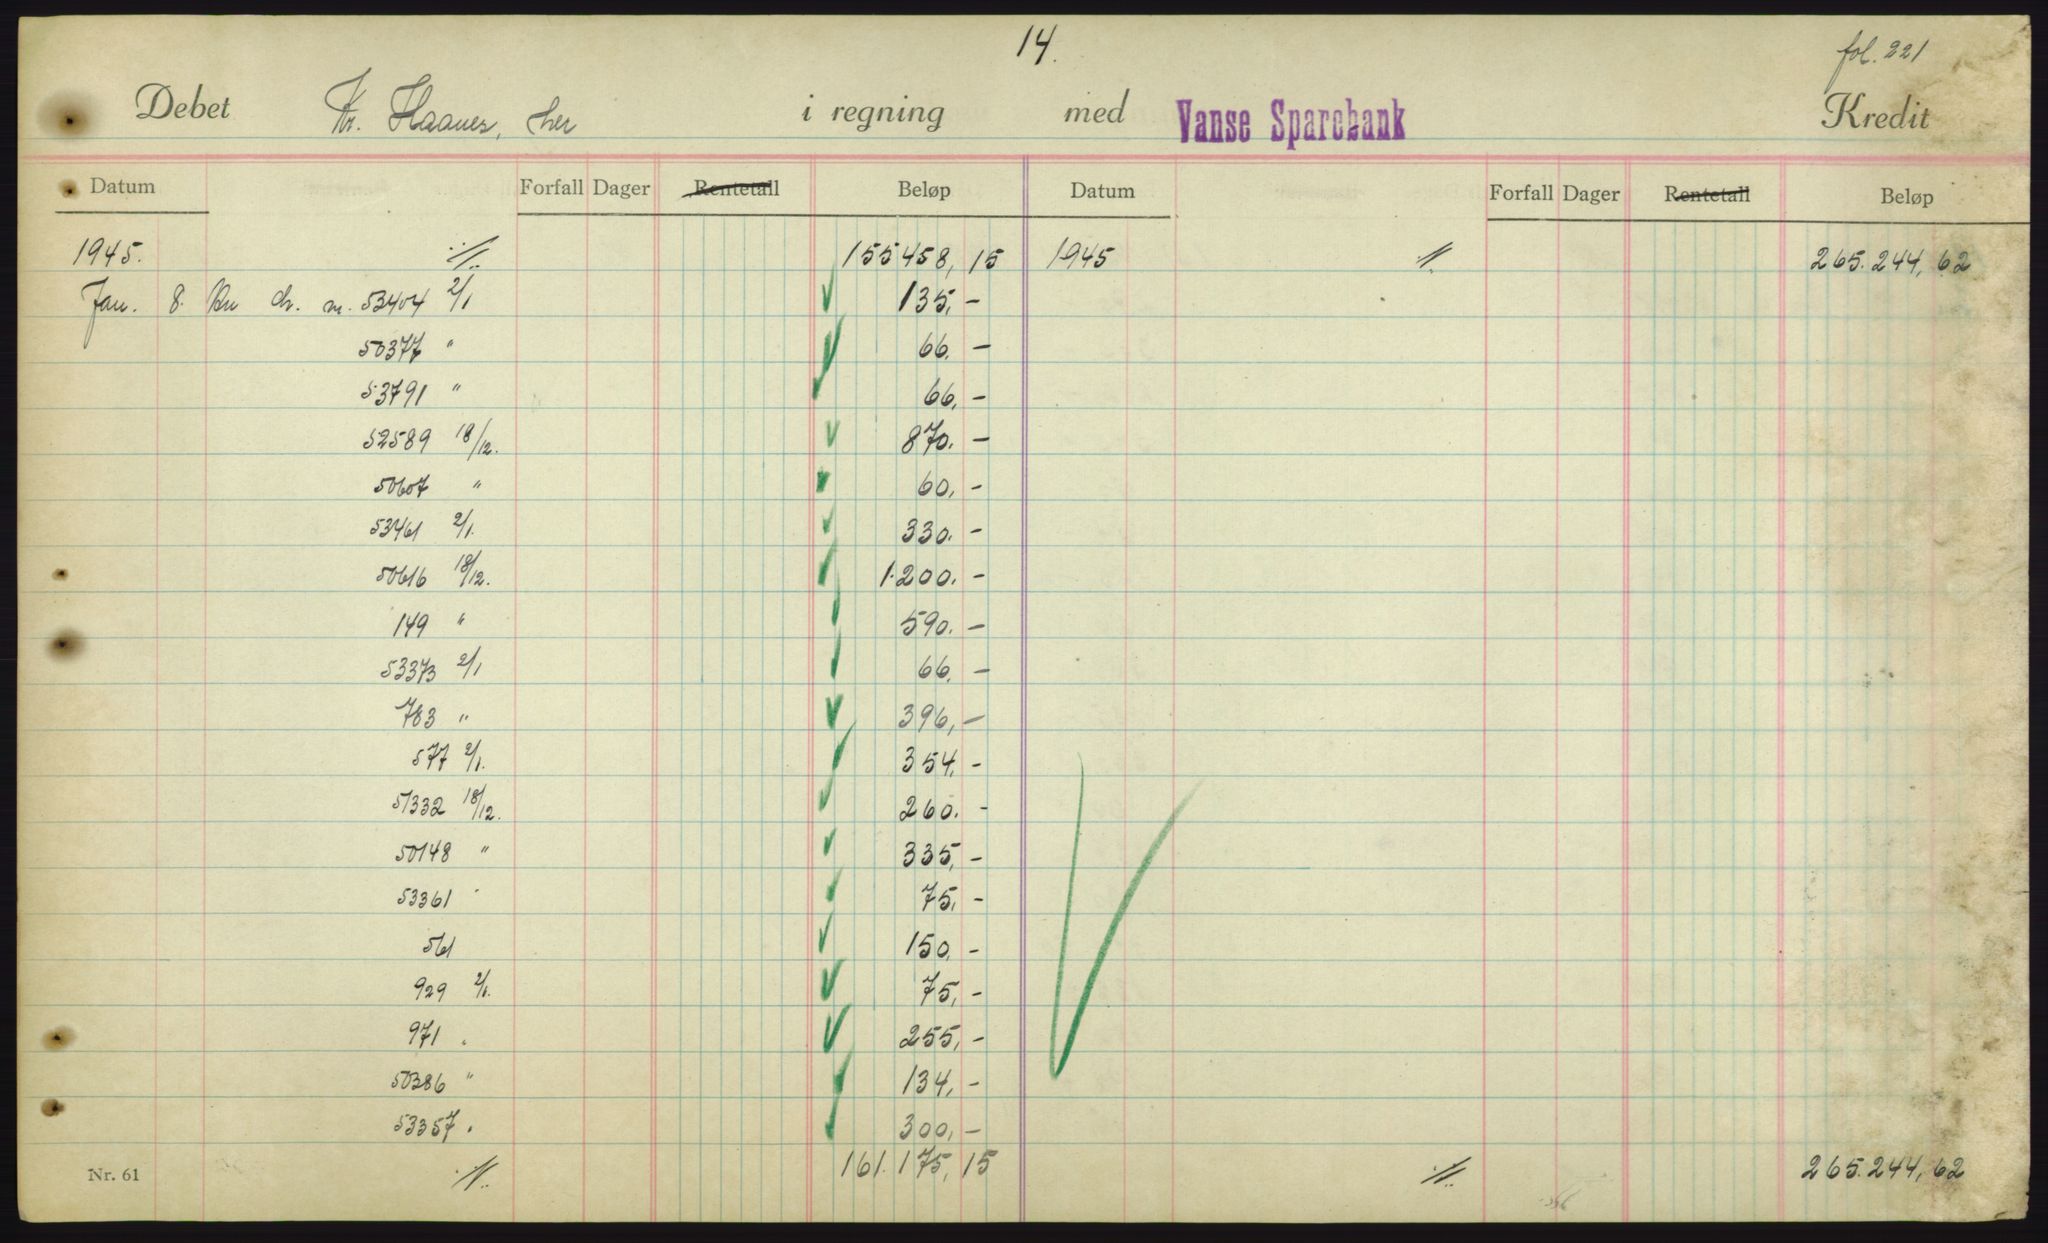 14.
fol. 221
Debet Kr. Haanes, her i regning med Vanse Sparebank Kredit
Datum Forfall Dager Rentetall Beløp Datum Forfall Dager Rentetall Beløp
1945. 155458,15 1945 265.244,62
Jan. 8. ch. nr. 53404 2/1 135,-
50377 " 66,-
53791 " 66,-
52589 18/12. 870.-
50607 " 60,-
53461 2/1. 330.-
50616 18/12. 1.200.-
149 " 590.-
53373 2/1 66,-
783 " 396,-
577 2/1. 354,-
51332 18/12. 260.-
50148 " 335,-
53361 75,-
561 150,-
929 2/1. 75,-
971 " 255,-
50386 " 134,-
53357 " 300,-
Nr. 61 161.175,15 265.244,62